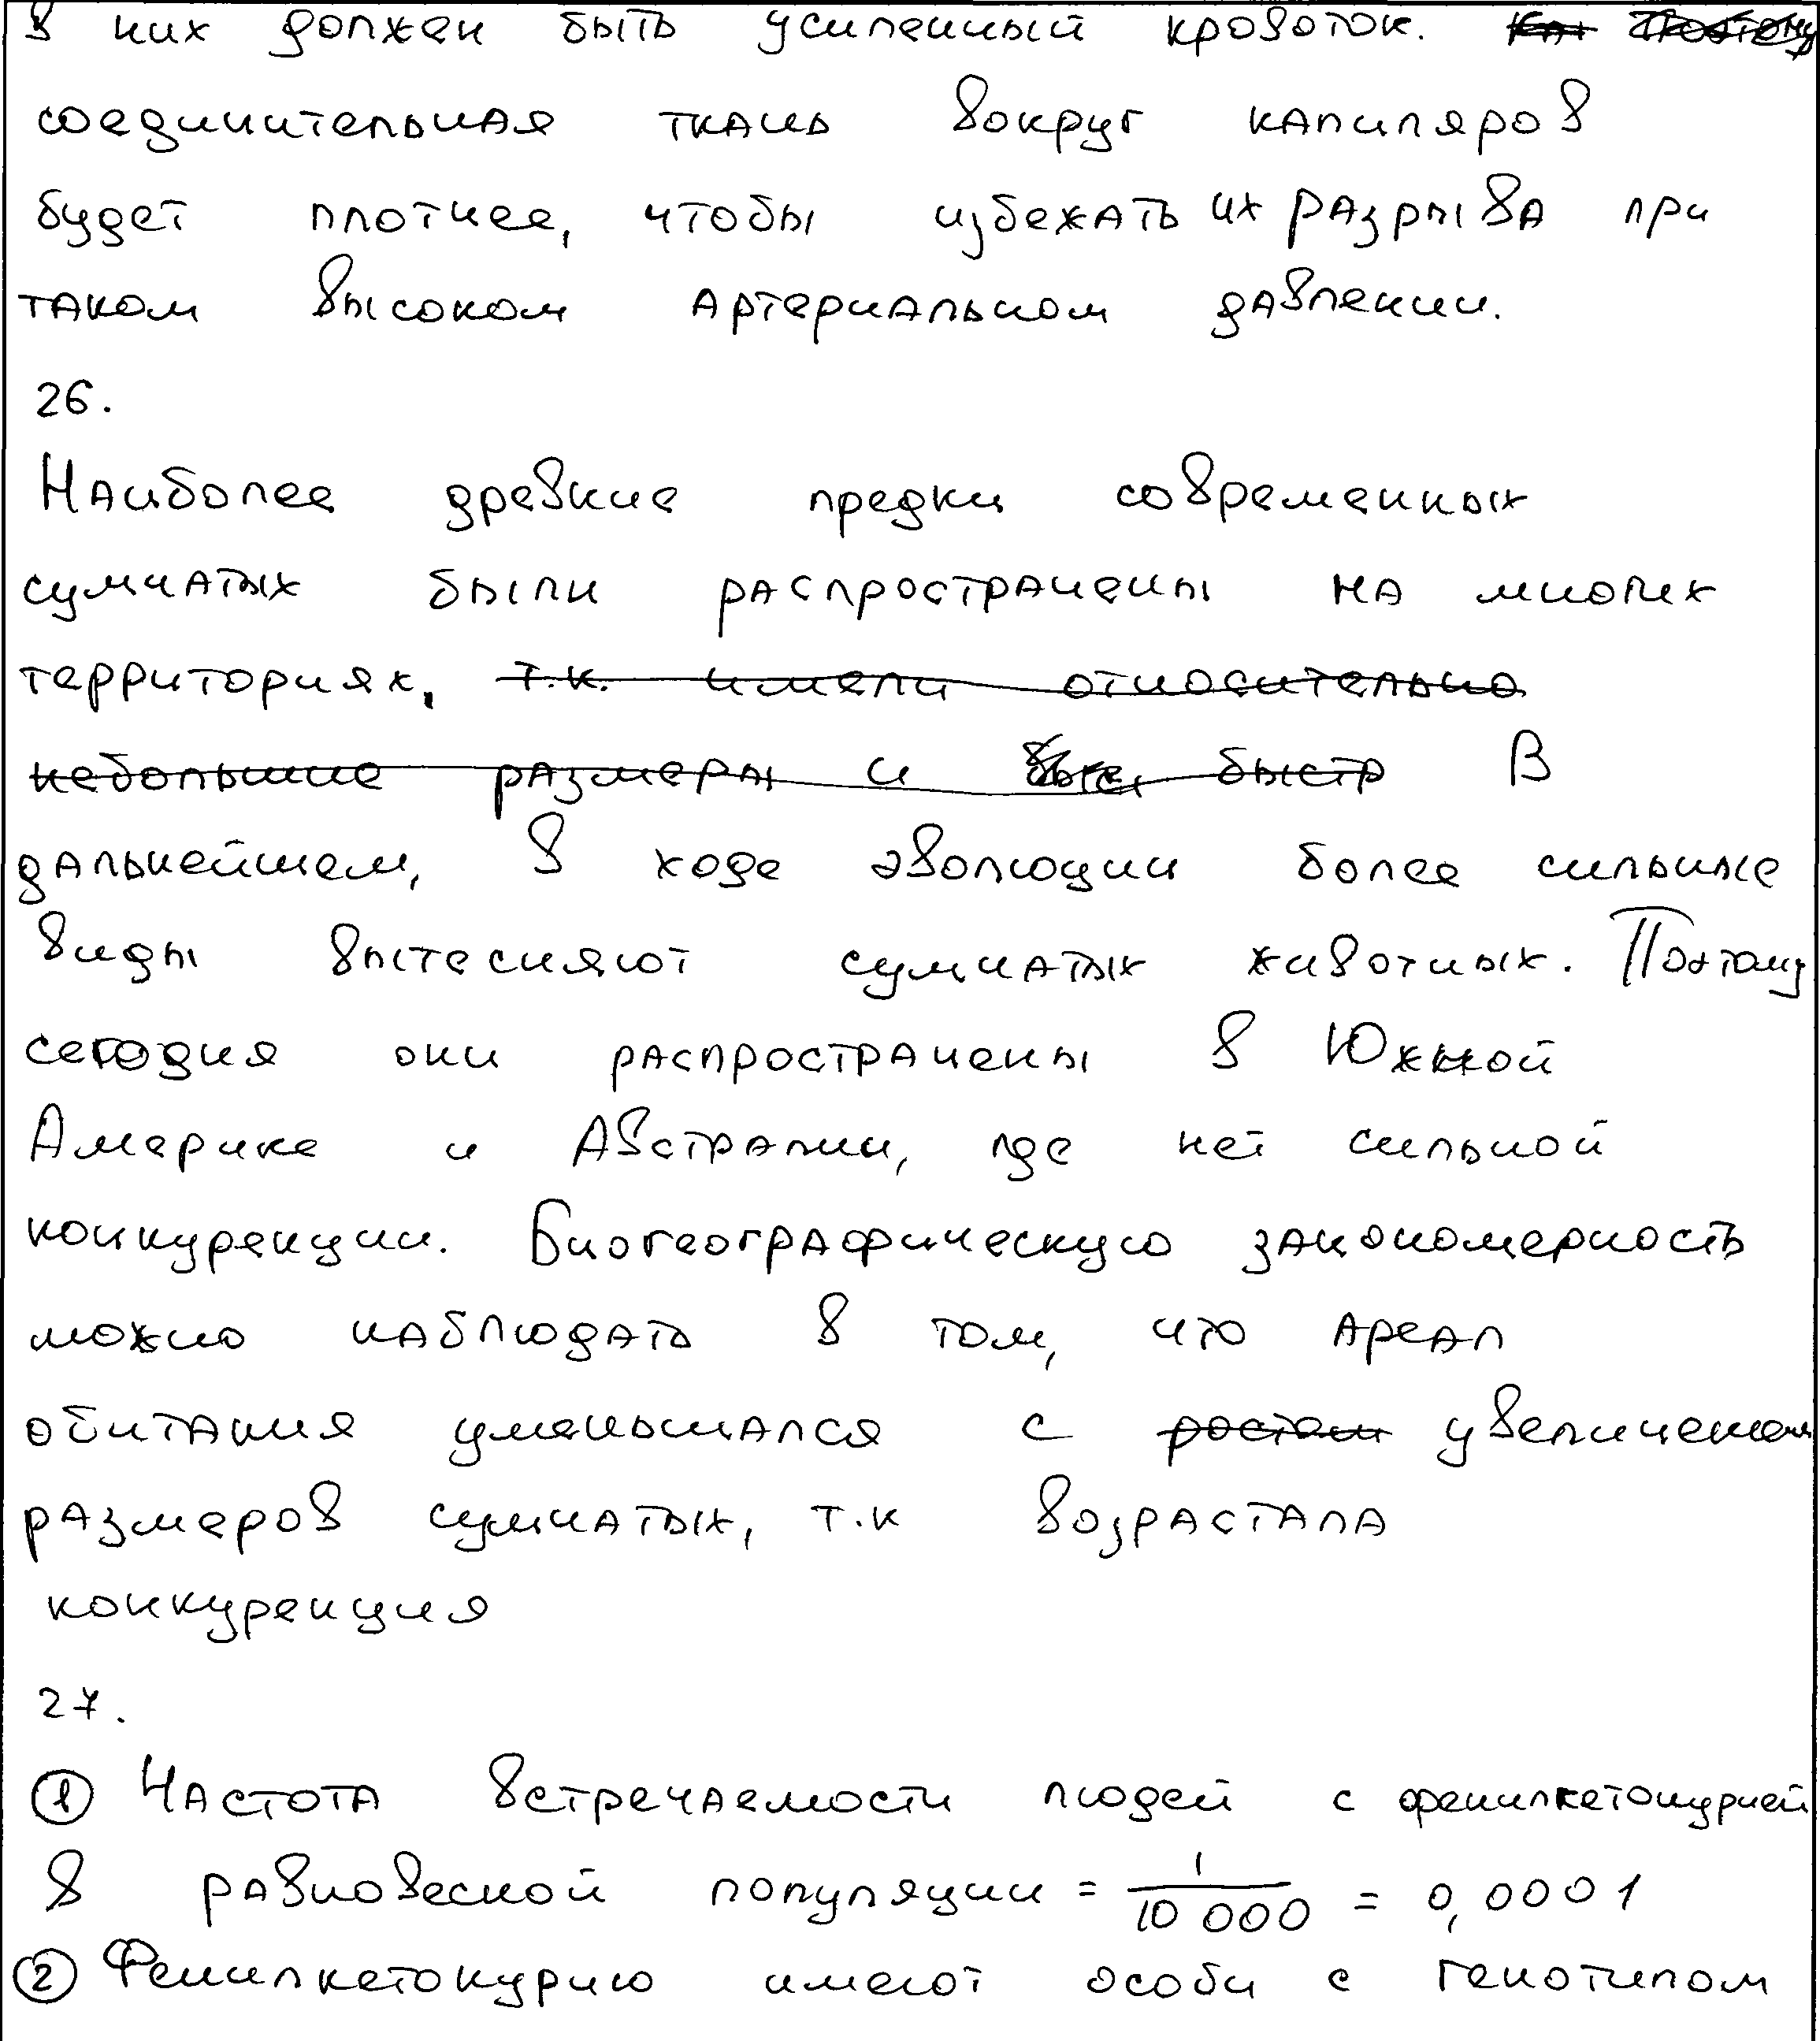 в них должен быть усиленный кровоток.
соединительная ткань вокруг капиляров
будет плотнее, чтобы избежать их разрыва при
таком высоком артериальном давлении.
26.
Наиболее древние предки современных
сумчатых были распространены на многих
территориях, т.к. имели относительно
небольшие размеры и быстр В
дальнейшем, в ходе эволюции более сильные
виды вытесняют сумчатых животных. Поэтому
сегодня они распространены в Южной
Америке и Австралии, где нет сильной
конкуренции. Биогеографическую закономерность
можно наблюдать в том, что ареал
обитания уменьшался с ростом увеличением
размеров сумчатых, т.к возрастала
конкуренция
27.
① Частота встречаемости людей с фенилкетонурией
в равновесной популяции = 1/10 000 = 0,0001
② Фенилкетонурию имеют особи с генотипом